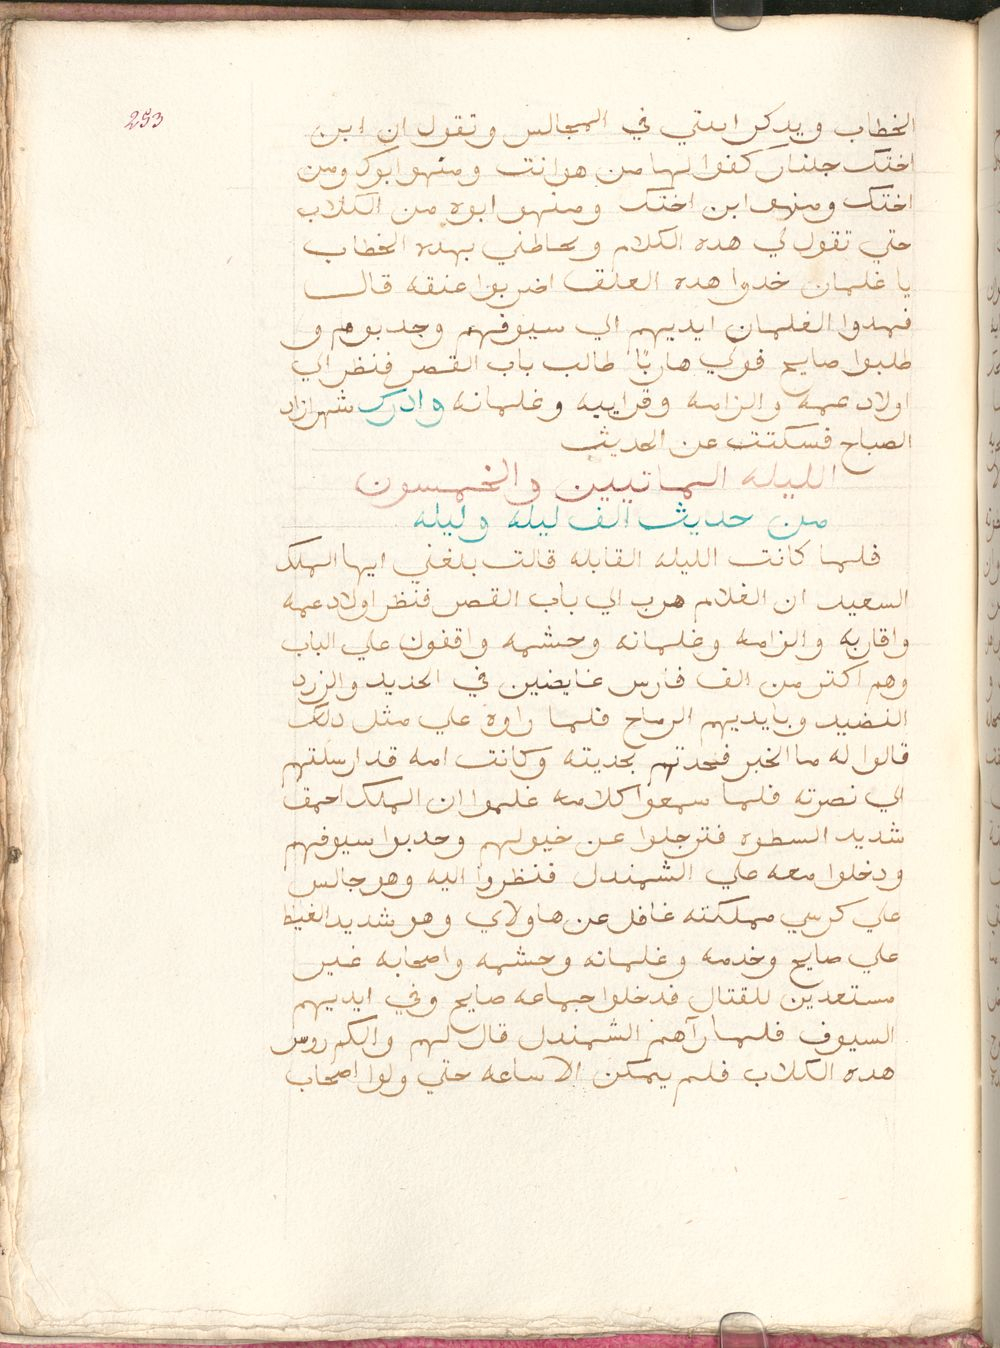 253
الخطاب ويدكر ابنتي في المجالس وتقول ان ابن
اختك جلنار كفوا لها من هو انت ومنهو ابوك ومن
اختك ومنهو ابن اختك ومنهو ابوه من الكلاب
حتي تقول لي هده الكلام وتخاطبني بهذه الخطاب
يا غلمان خدوا هده العلق اضربوا عنقه قال
فمدوا الغلمان ايديهم الي سيوفهم وجدبوهم و
طلبوا صايح فولي هاربًا طالب باب القصر فنظر الي
اولاد عمه والزامه وقرايبه وغلمانه وادرك شهرازاد
الصباح فسكتت عن الحديث
الليله المايتيين والخمسون
من حديث الف ليله وليله
فلما كانت الليله القابله قالت بلغني ايها الملك
السعيد ان الغلام هرب الي باب القصر فنظر اولاد عمه
واقاربه والزامه وغلمانه وحشمه واقفون علي الباب
وهم اكتر من الف فارس غايضين في الحديد والزرد
النضيد وبايديهم الرماح فلما راوه علي مثل دلك
قالوا له ما الخبر فحدتهم بحديته وكانت امه قد ارسلتهم
الي نصرته فلما سمعوا كلامه علموا ان الملك احمق
شديد السطوه فترجلوا عن خيولهم وجدبوا سيوفهم
ودخلوا معه علي الشمندل فنظروا اليه وهو جالس
علي كرسي مملكته غافل عن هاولاي وهو شديد الغيظ
علي صايح وخدمه وغلمانه وحشمه واصحابه غير
مستعدين للقتال فدخلوا جماعه صايح وفي ايديهم
السيوف فلما رآهم الشمندل قال لهم والكم روس
هده الكلاب فلم يمكن الا ساعه حتي ولوا اصحاب